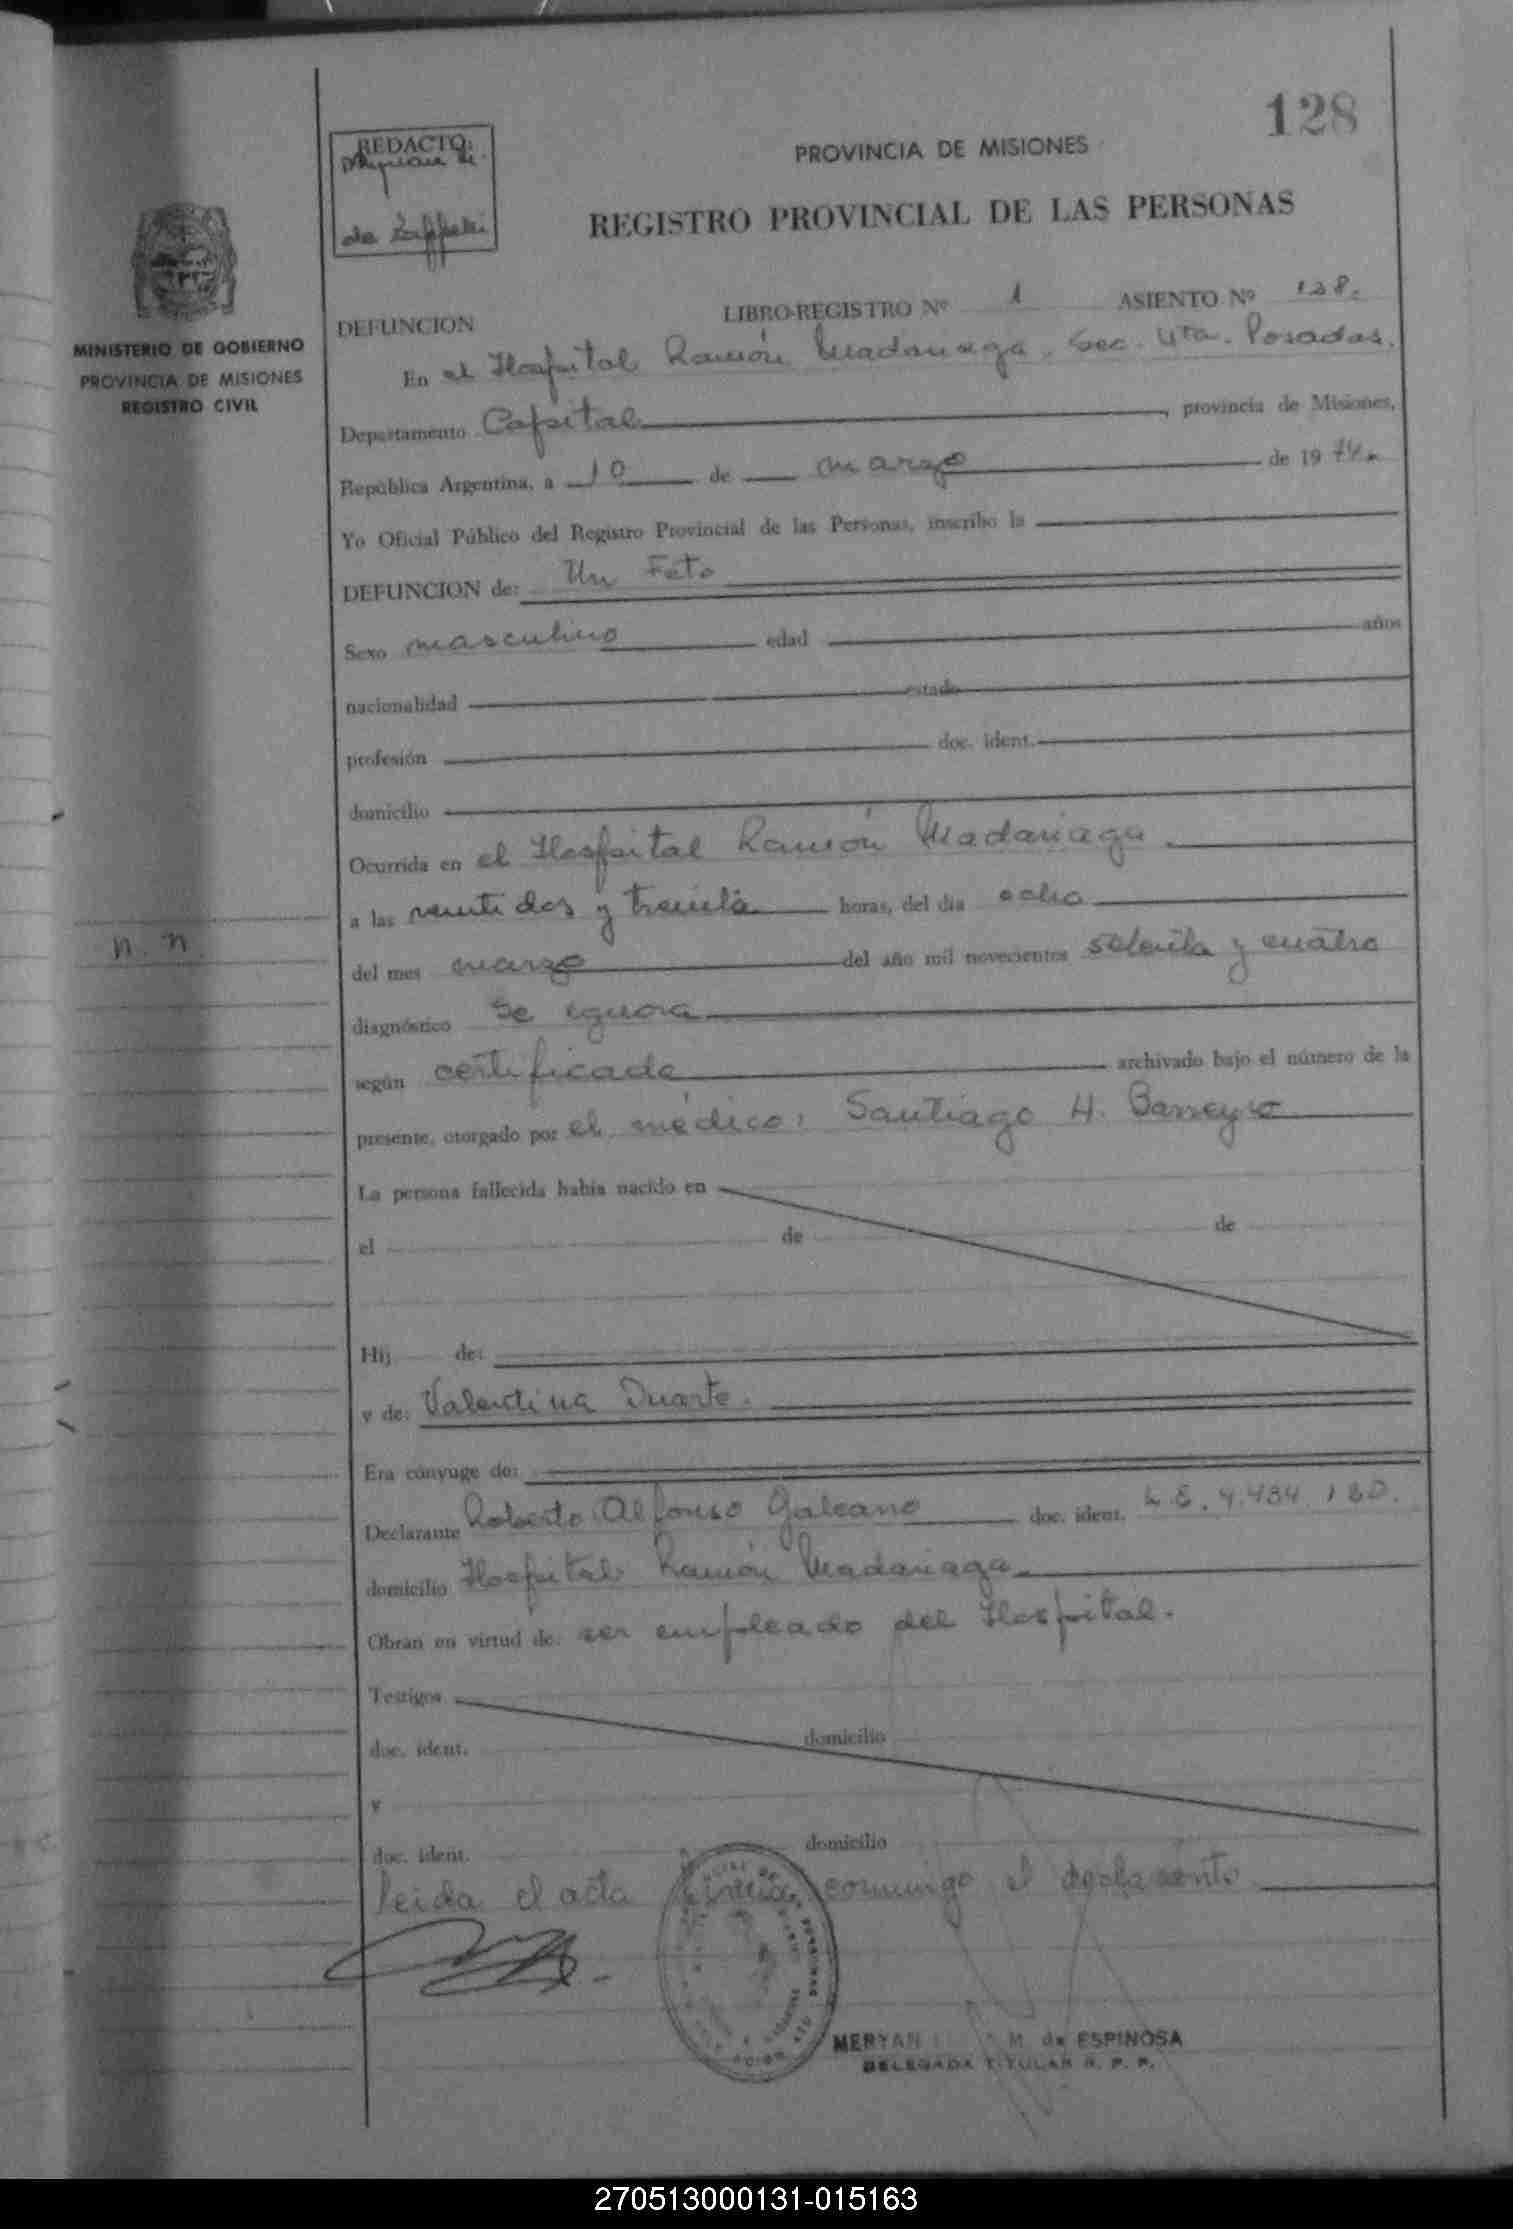 128
REDACTO:
de Zaffeli
PROVINCIA DE MISIONES
REGISTRO PROVINCIAL DE LAS PERSONAS
MINISTERIO DE GOBIERNO
PROVINCIA DE MISIONES
REGISTRO CIVIL
DEFUNCION LIBRO-REGISTRO Nº 1 ASIENTO Nº 128.
En el Hospital Ramón Madariaga. Sec. 4ta. Posadas.
Departamento Capital, provincia de Misiones,
República Argentina, a 10 de marzo de 1974.
Yo Oficial Público del Registro Provincial de las Personas, inscribo la
DEFUNCION de: Un Feto
Sexo masculino edad años
nacionalidad estado
profesión doc. ident.
domicilio
Ocurrida en el Hospital Ramón Madariaga.
a las veinti dos y treinta horas, del día ocho
n. n.
del mes marzo del año mil novecientos setenta y cuatro
diagnóstico se ignora
según certificado archivado bajo el número de la
presente, otorgado por el médico: Santiago H. Barreyro
La persona fallecida había nacido en
el de de
Hij de:
y de: Valentina Duarte.
Era cónyuge de:
Declarante Roberto Alfonso Galeano doc. ident. L.E. 4.434.180.
domicilio Hospital Ramón Madariaga.
Obran en virtud de: ser empleado del Hospital.
Testigos
doc. ident. domicilio
y
doc. ident. domicilio
leida el acta firma commigo el declarante
MERYAN M. de ESPINOSA
DELEGADA TITULAR R. P. P.
270513000131-015163